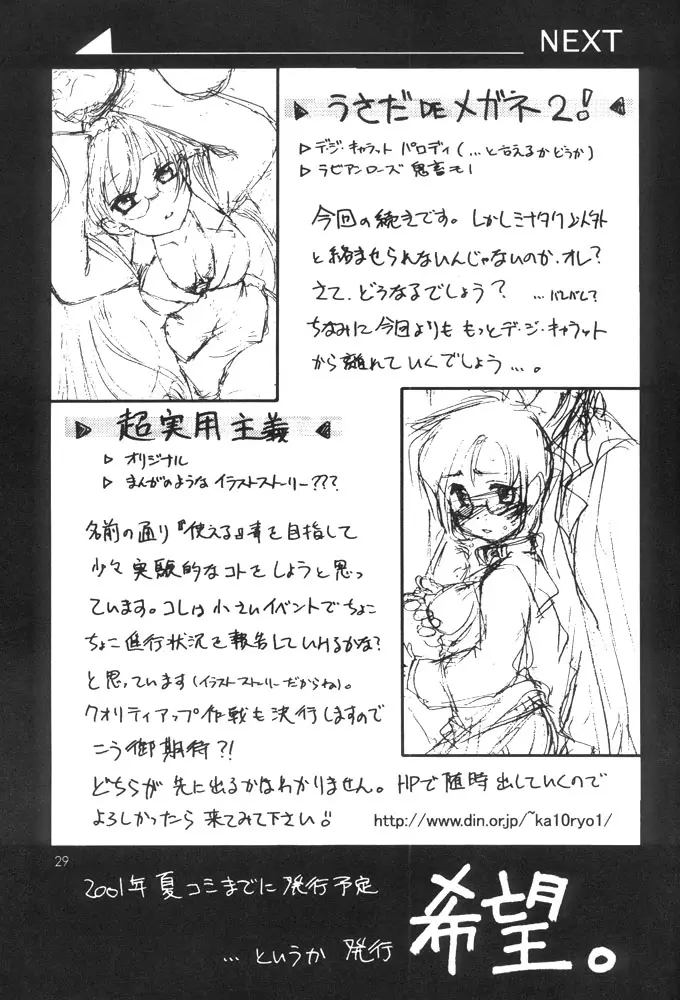 NEXT
うさだDEメガネ2!
▷デ・ジ・キャラット パロディ(…と言えるかどうか)
▷ラビアンローズ 鬼畜モノ
今回の続きです。しかしミナタク以外
と絡ませられないんじゃないのか、オレ?
さて、どうなるでしょう? …バレバレ?
ちなみに今回よりも もっとデ・ジ・キャラット
から離れていくでしょう…。
超実用主義
▷オリジナル
▷まんがのような イラストストーリー???
名前の通り『使える』書を目指して
少々実験的なコトをしようと思っ
ています。コレは小さいイベントでちょこ
ちょこ進行状況を報告していけるかな?
と思っています(イラストストーリーだからね)。
クオリティアップ作戦も決行しますので
こう御期待?!
どちらが先に出るかはわかりません。HPで随時出していくので
よろしかったら来てみて下さい!!
http://www.din.or.jp/~ka10ryo1/
29
2001年夏コミまでに発行予定
…というか 発行 希望。